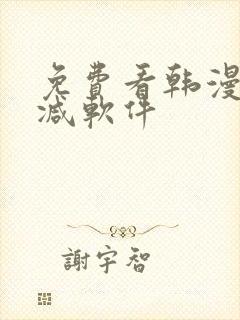 免費看韩漫
减軟件
謝宇智